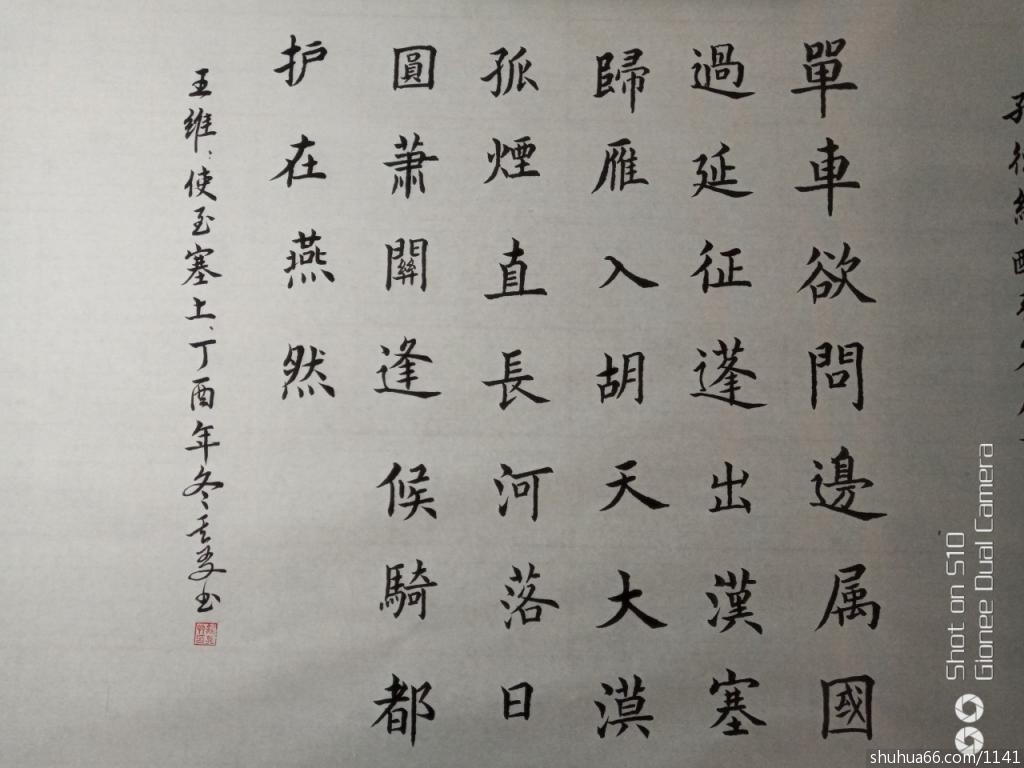 單車欲問邊属國
過延征蓬出漢塞
歸雁入胡天大漠
孤煙直長河落日
圓蕭關逢候騎都
护在燕然
王維、使至塞上、丁酉年冬
书
Shot on S10
Gionee Dual Camera
shuhua66.com/1141